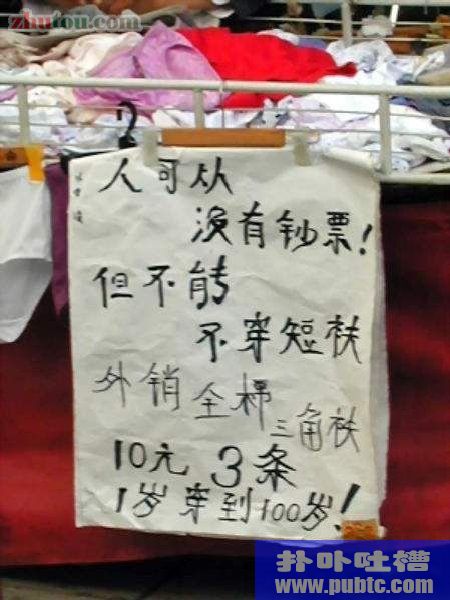 zhutou.com
人可从
没有钞票!
但不能
不穿短袄
外销全棉
三角袄
10元3条
1岁穿到100岁!
扑卟吐槽
www.pubtc.com